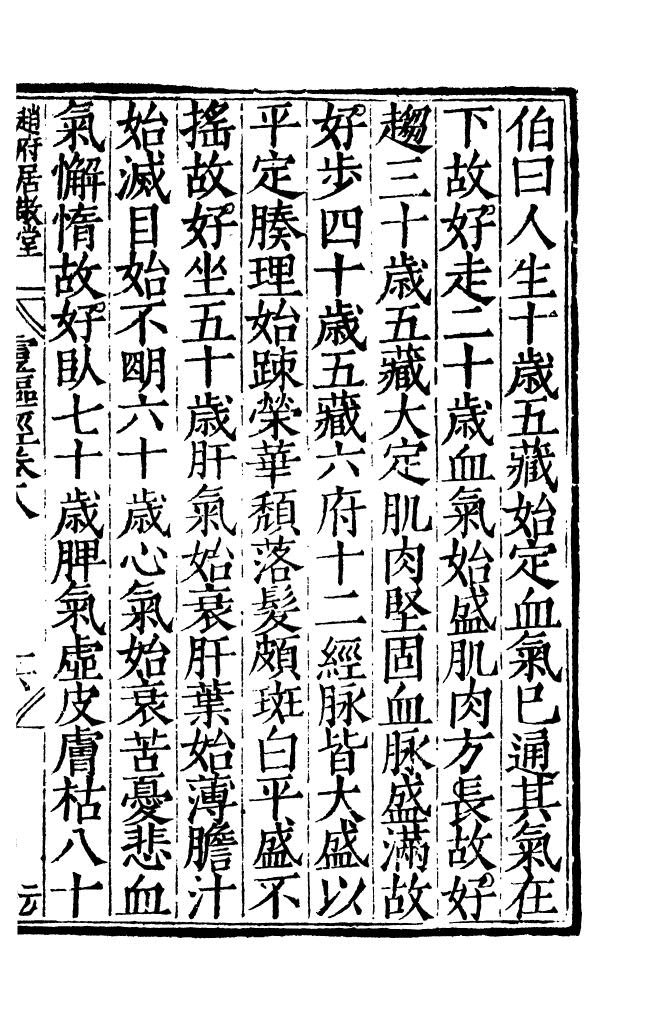 伯曰人生十歲五藏始定血氣已通其氣在
下故好走二十歲血氣始盛肌肉方長故好
趨三十歲五藏大定肌肉堅固血脉盛滿故
好步四十歲五藏六府十二經脉皆大盛以
平定腠理始踈榮華頹落髮頗斑白平盛不
搖故好坐五十歲肝氣始衰肝葉始薄膽汁
始滅目始不明六十歲心氣始衰苦憂悲血
氣懈惰故好臥七十歲脾氣虛皮膚枯八十
趙府居敬堂 靈樞經卷八